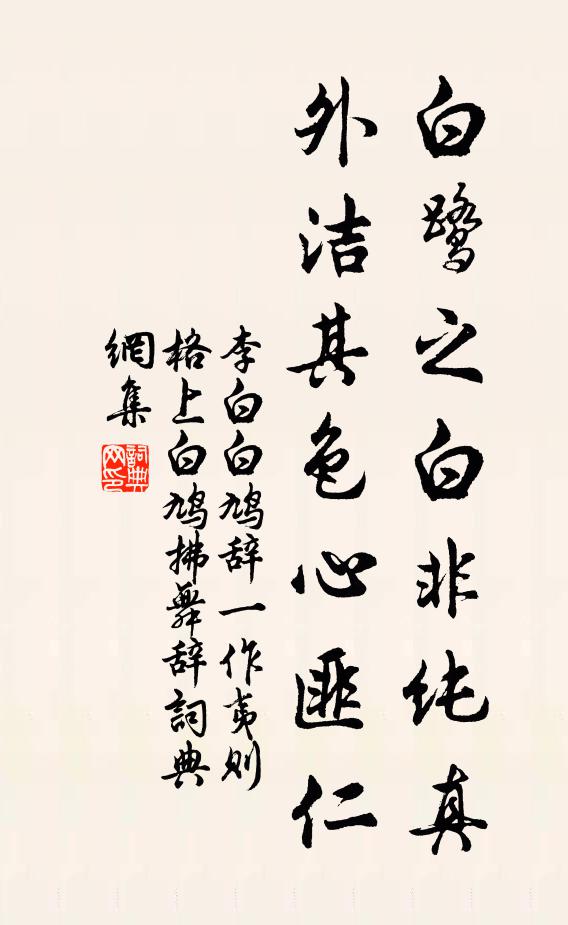 白鹭之白非纯真
外洁其色心匪仁
李白白鸠辞一作夷则
格上白鸠拂舞辞詞典
網集
詞典
网印